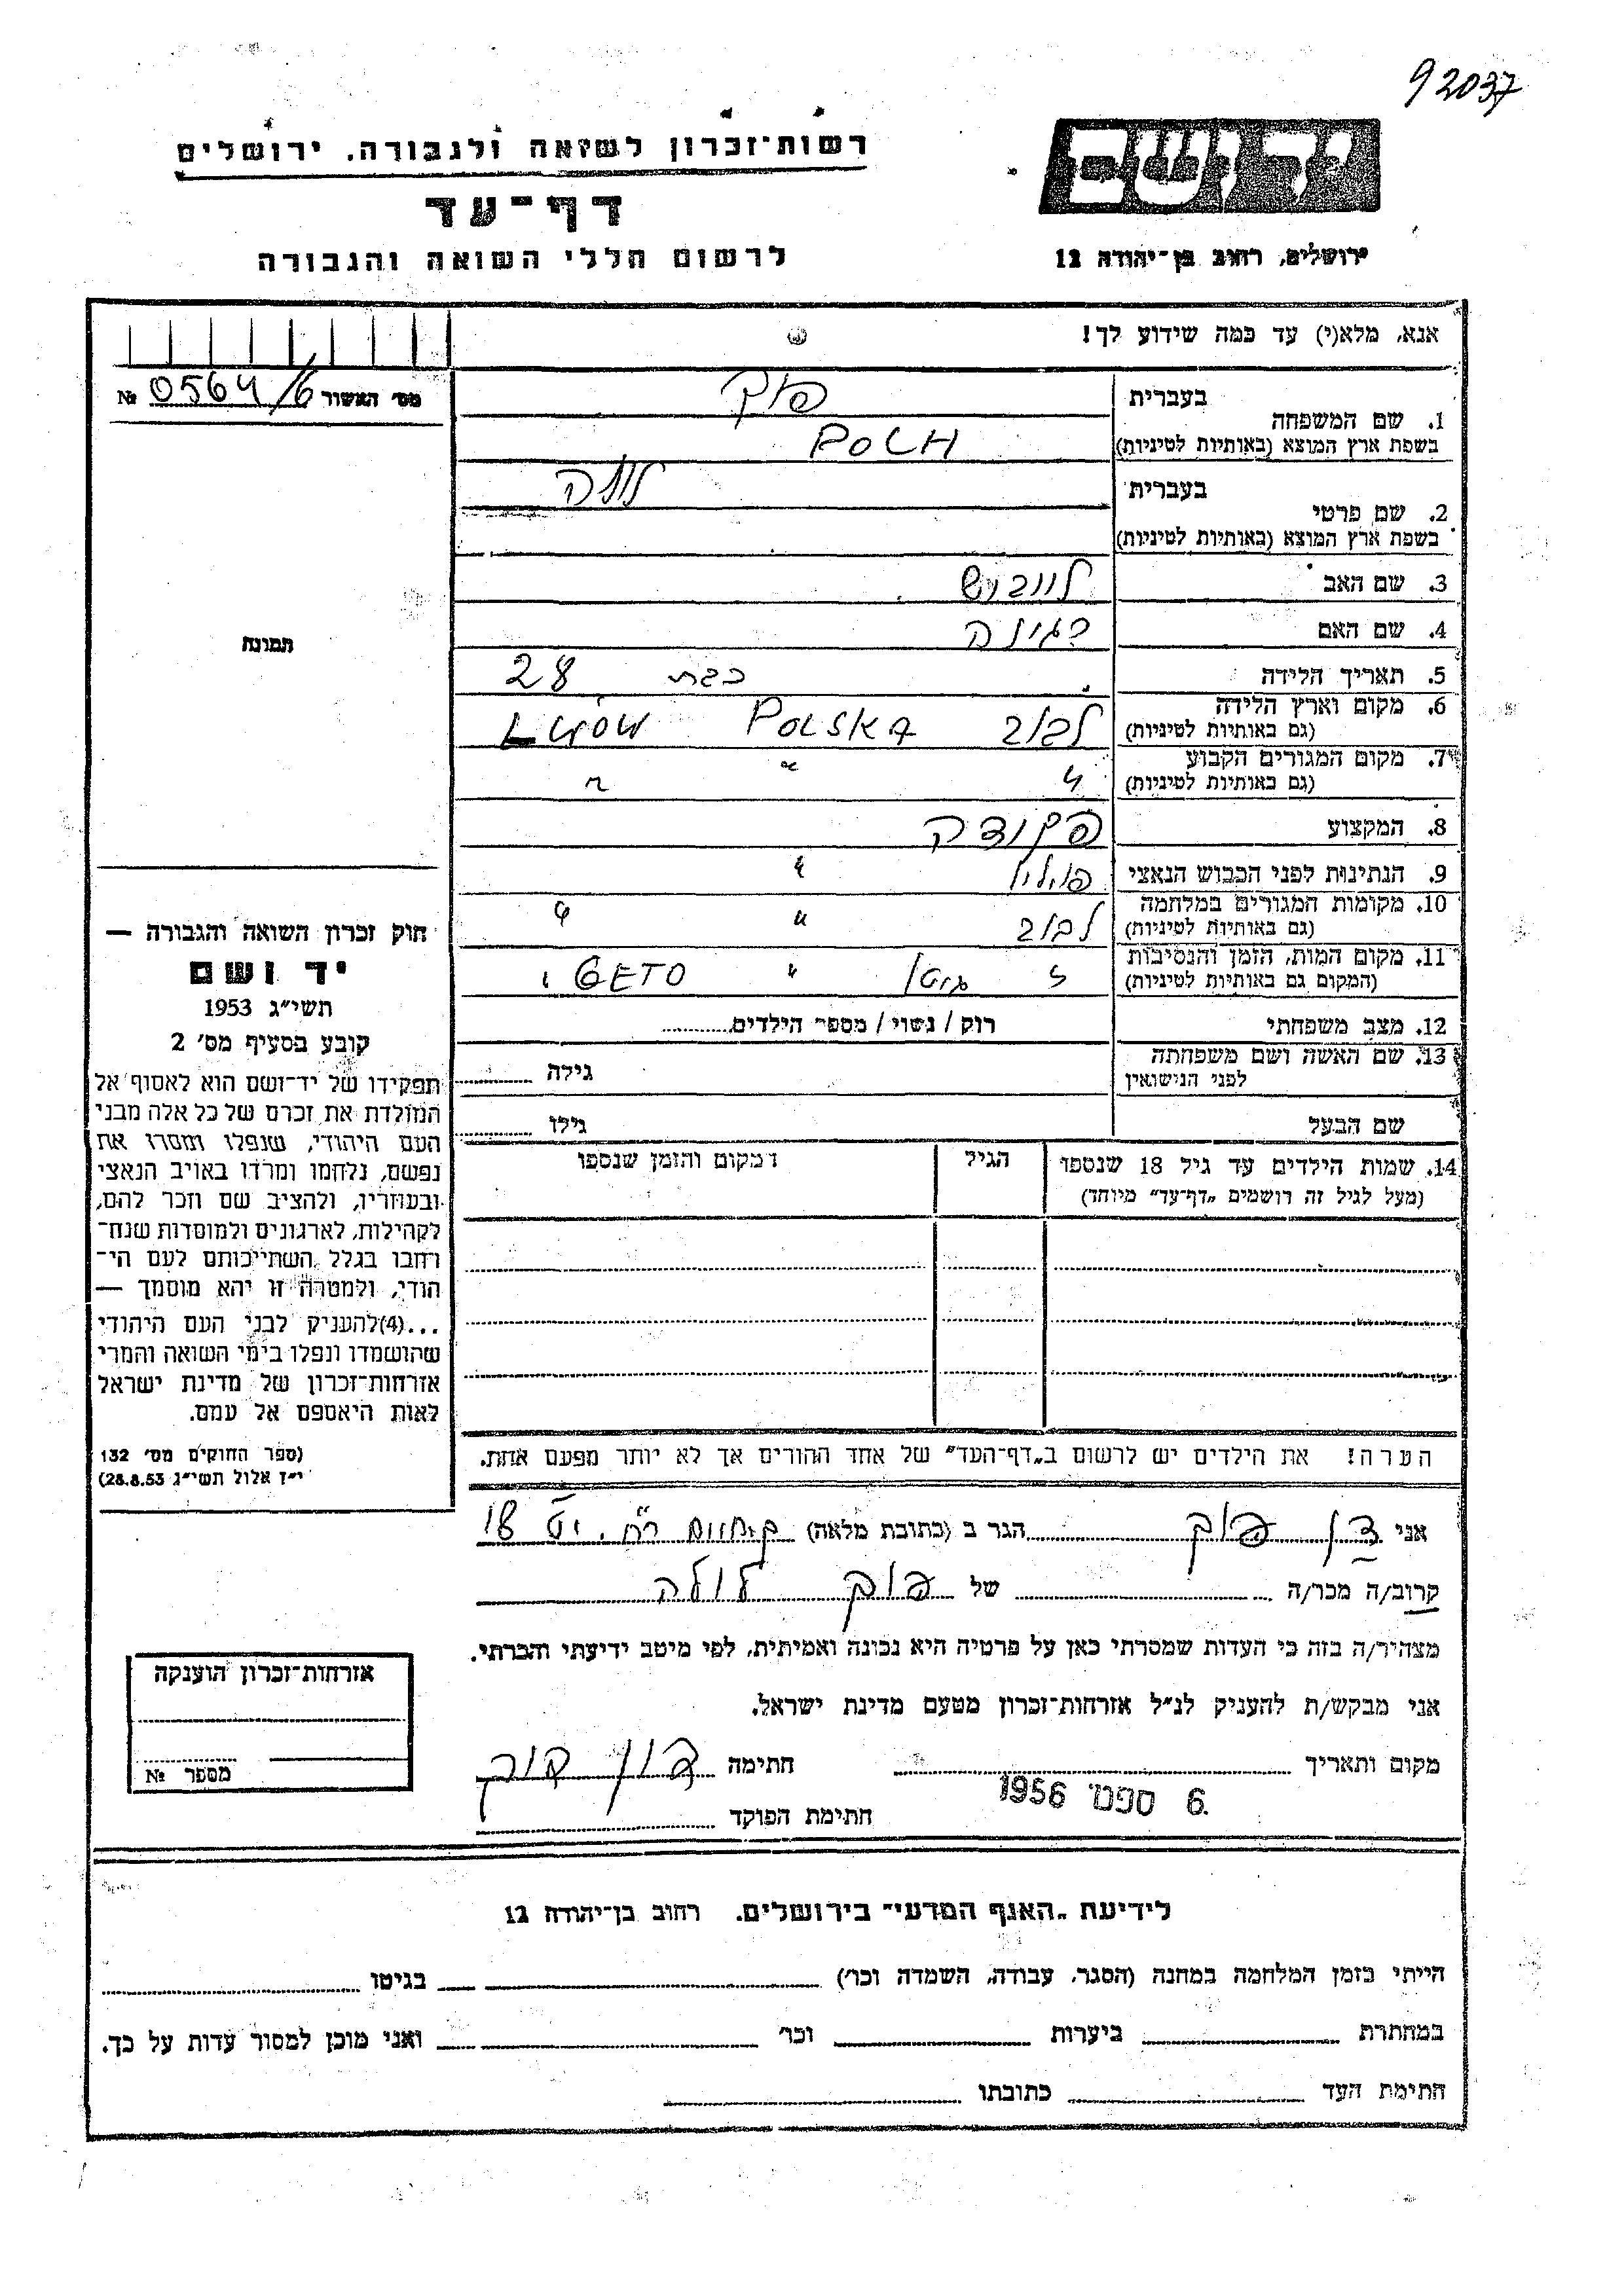 92037
רשות־זכרון לשואה ולגבורה, ירושלים
יד ושם
דף־עד
לרשום חללי השואה והגבורה
ירושלים, רחוב בן־יהודה 12
אנא, מלא(י) עד כמה שידוע לך!
מס׳ האשור № 0564/6
בעברית פוך
1. שם המשפחה
בשפת ארץ המוצא (באותיות לטיניות) POCH
בעברית
2. שם פרטי
בשפת ארץ המוצא (באותיות לטיניות)
3. שם האב לייבוש
4. שם האם רגינה
5. תאריך הלידה כבת 28
6. מקום וארץ הלידה לבוב POLSKA LWÓW
(גם באותיות לטיניות)
7. מקום המגורים הקבוע " " "
(גם באותיות לטיניות)
8. המקצוע פקידה
9. הנתינות לפני הכבוש הנאצי "
10. מקומות המגורים במלחמה לבוב " "
(גם באותיות לטיניות)
11. מקום המות, הזמן והנסיבות גיטו " GETO
(המקום גם באותיות לטיניות)
12. מצב משפחתי רוק / נשוי / מספר הילדים
13. שם האשה ושם משפחתה גילה
לפני הנישואין
שם הבעל גילו
14. שמות הילדים עד גיל 18 שנספו הגיל המקום והזמן שנספו
(מעל לגיל זה רושמים „דף־עד״ מיוחד)
הערה! את הילדים יש לרשום ב„דף־העד״ של אחד ההורים אך לא יותר מפעם אחת.
תמונה
חוק זכרון השואה והגבורה —
יד ושם
תשי״ג 1953
קובע בסעיף מס׳ 2
תפקידו של יד־ושם הוא לאסוף אל
המולדת את זכרם של כל אלה מבני
העם היהודי, שנפלו ומסרו את
נפשם, נלחמו ומרדו באויב הנאצי
ובעוזריו, ולהציב שם וזכר להם,
לקהילות, לארגונים ולמוסדות שנח־
רבו בגלל השתייכותם לעם הי־
הודי, ולמטרה זו יהא מוסמך —
...(4)להעניק לבני העם היהודי
שהושמדו ונפלו בימי השואה והמרי
אזרחות־זכרון של מדינת ישראל
לאות היאספם אל עמם.
(ספר החוקים מס׳ 132
י״ז אלול תשי״ג 28.8.53)
אני פוך הגר ב (כתובת מלאה) 18
קרוב/ה מכר/ה של פוך לולה
מצהיר/ה בזה כי העדות שמסרתי כאן על פרטיה היא נכונה ואמיתית, לפי מיטב ידיעתי והכרתי.
אני מבקש/ת להעניק לנ״ל אזרחות־זכרון מטעם מדינת ישראל.
מקום ותאריך חתימה פוך
6 ספט׳ 1956
חתימת הפוקד
אזרחות־זכרון הוענקה
מספר №
לידיעת „האגף המדעי״ בירושלים. רחוב בן־יהודה 12
הייתי בזמן המלחמה במחנה (הסגר, עבודה, השמדה וכו׳) בגיטו
במחתרת ביערות וכו׳ ואני מוכן למסור עדות על כך.
חתימת העד כתובתו